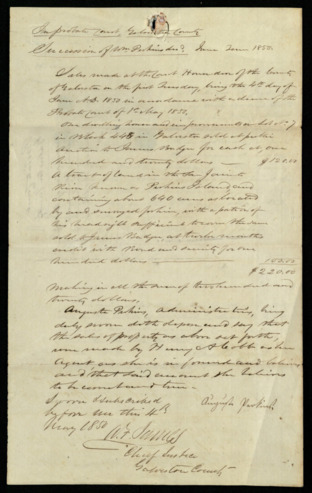 In probate Court, Galveston County
Succession of Wm Perkins decd. June Term 1850.
Sales made at the Court House door of the County
of Galveston on the first Tuesday, being the 4th day of
June A.D. 1850 in accordance with a decree of the
Probate Court of 1st May 1850,
One dwelling house and improvements on Lot No. 7
in Block 448 in Galveston sold at public
auction to James Badge for cash at one
hundred and twenty dollars $120.00
A tract of land in the San Jacinto
River known as Perkins Island, and
containing about 640 acres as located
by and surveyed for him, with a portion of
his headright sufficient to cover the same
sold to James Badge, at twelve months
credit with bond and security for one
hundred dollars 100.00
$220.00
Making in all the sum of two hundred and
twenty dollars,
Augusta Perkins, Administratrix, being
duly sworn doth depose and say that
the sales of property as above set forth,
were made by Henry A Cobb as her
Agent as she is informed and believes
and that said account she believes
to be correct and true.
Sworn & subscribed Augusta Perkins
before me this 4th
May 1850
Chief Justice
Galveston County